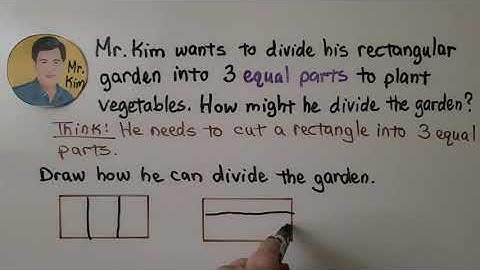 Mr. Kim
Mr. Kim wants to divide his rectangular
garden into 3 equal parts to plant
vegetables. How might he divide the garden?
Think: He needs to cut a rectangle into 3 equal
parts.
Draw how he can divide the garden.